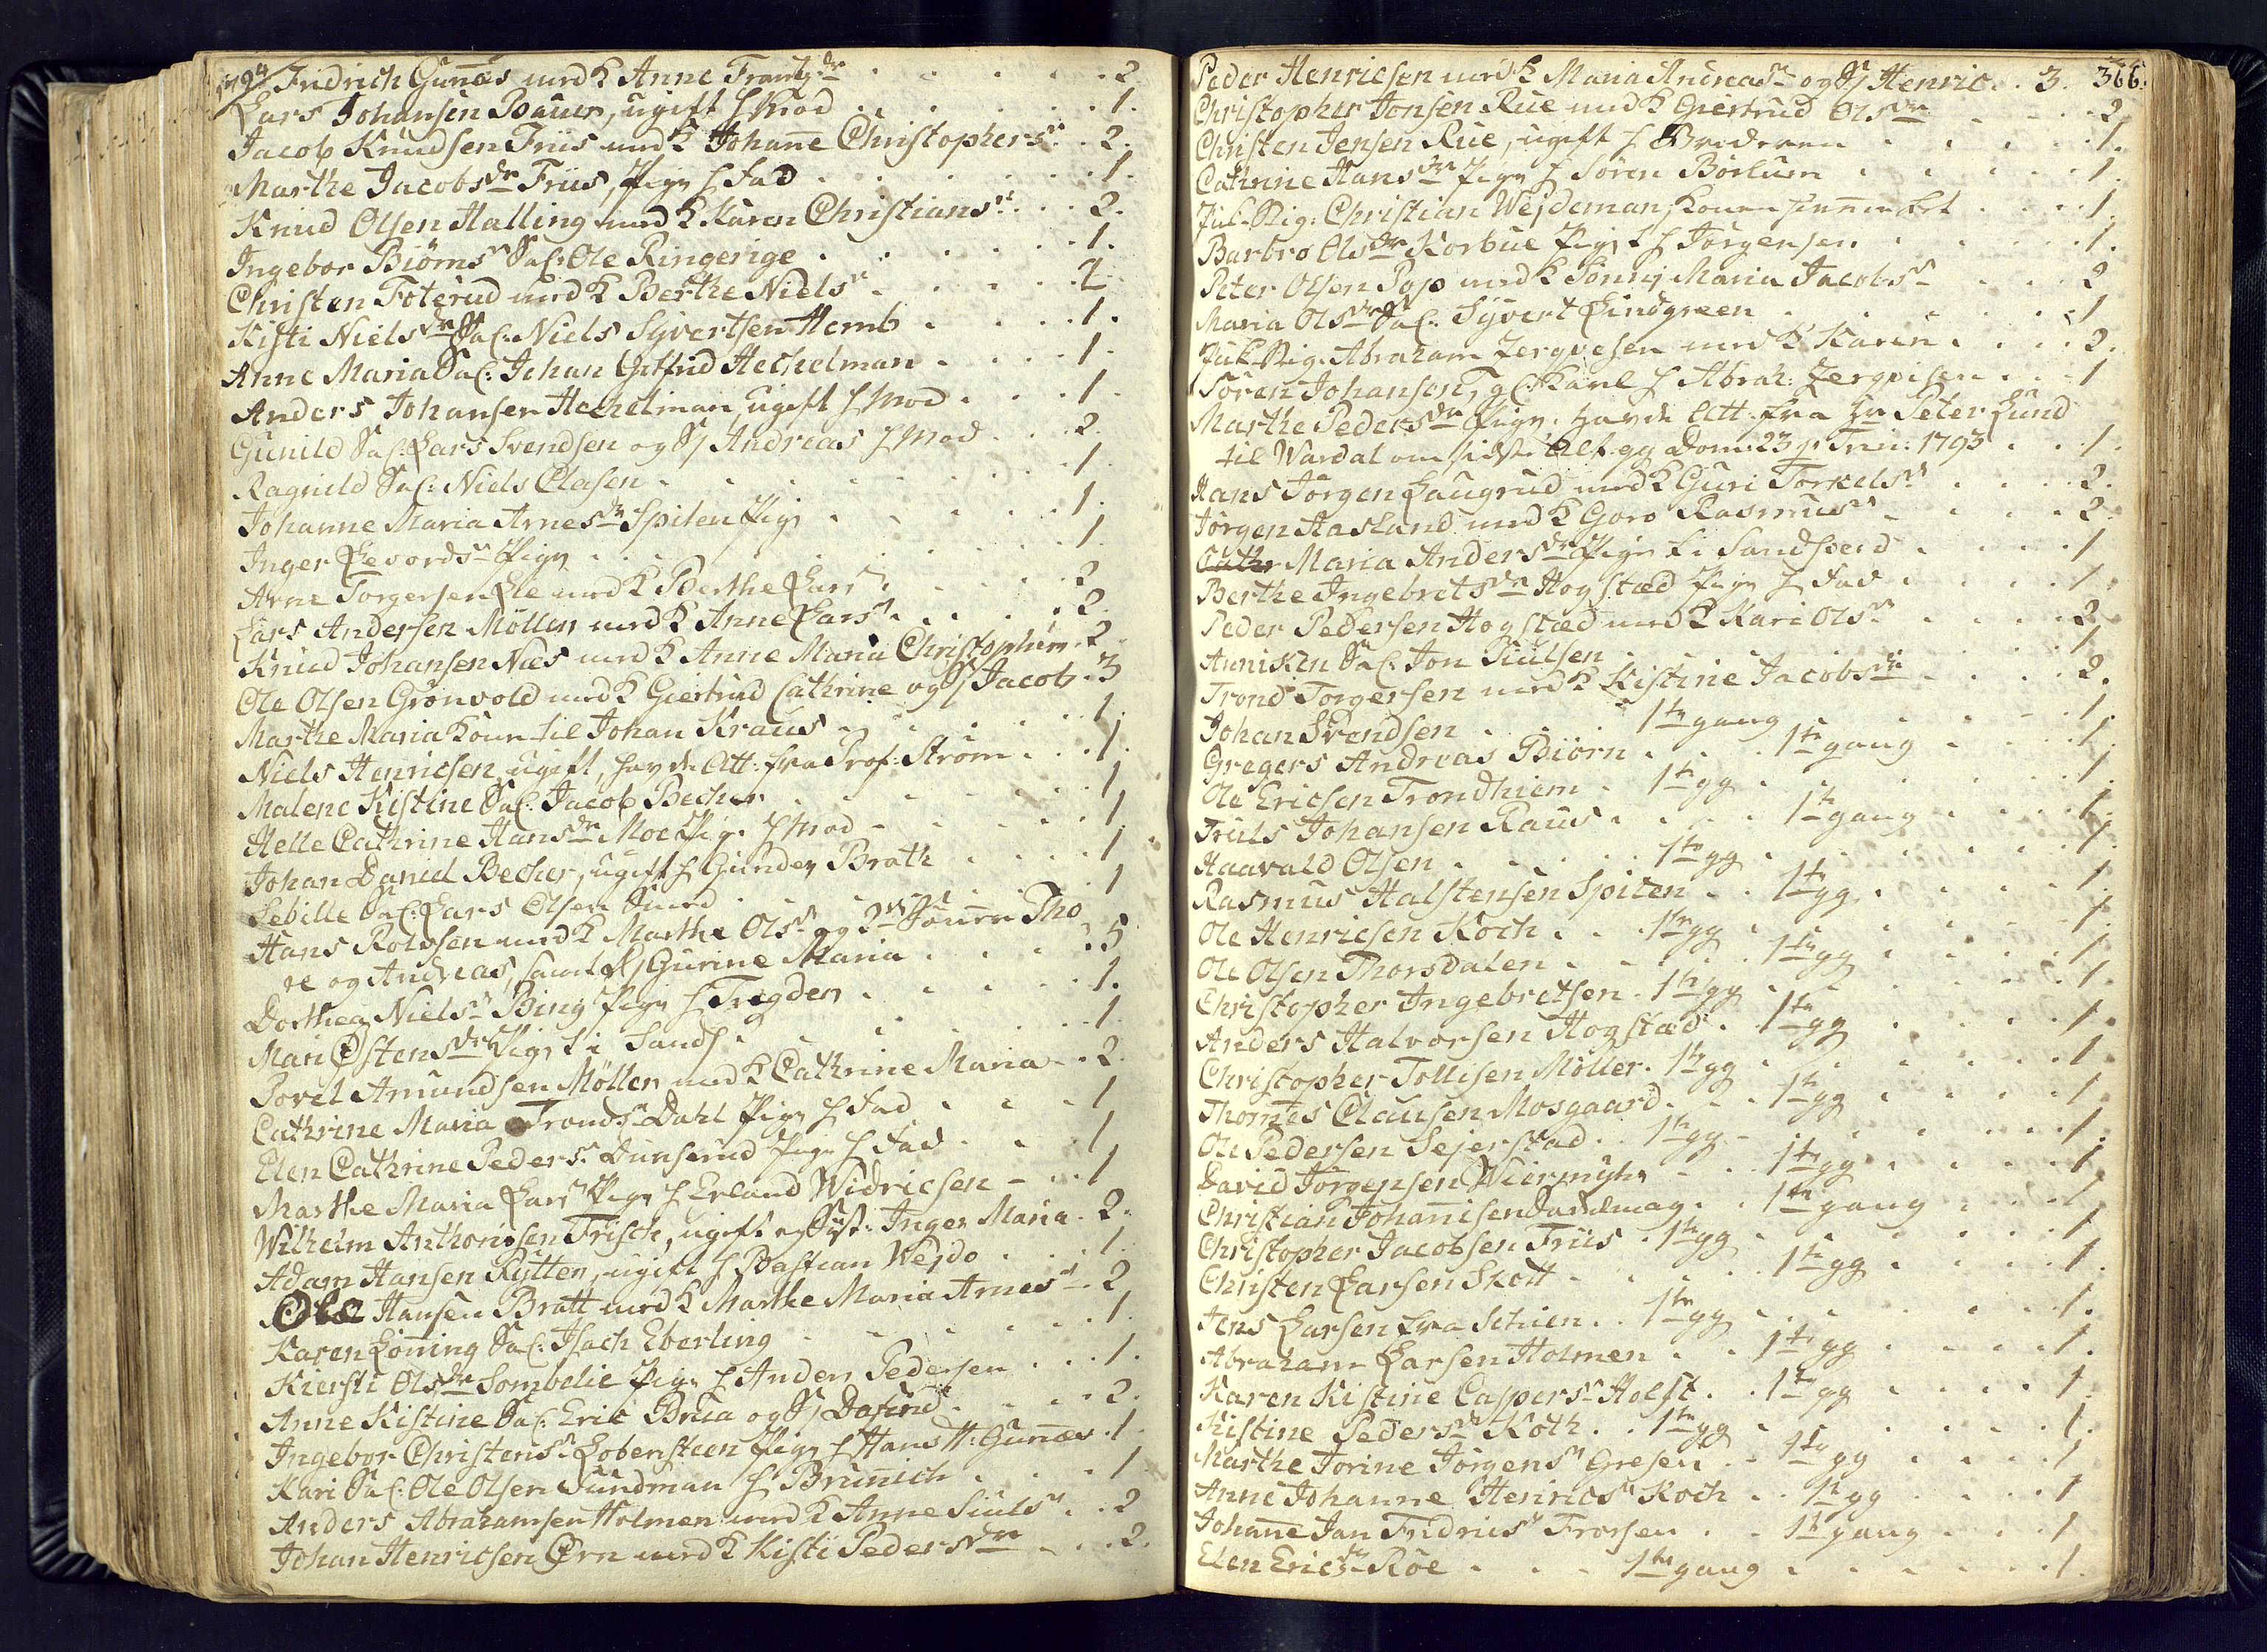 1794 Fridrich Gunæs med K Anne Frantzdr 2
Lars Johansen Bauer, ugift h Mod 1.
Jacob Knudsen Friis med K Johane Christophersdr 2.
Marthe Jacobsdr Friis, Pige h Fad 1.
Knud Olsen Halling med K Karen Christiansdr 2.
Ingebor Biörnsdr Sal: Ole Ringerige 1.
Christen Foterud med K Berthe Nielsdr 2
Kisti Nielsdr Sal: Niels Syvertsen Hemb 1.
Anne Maria Sal: Johan Gotfrid Hechelman 1
Anders Johansen Hechelman, ugift h Mod 1
Gunild Sal: Lars Svendsen og S Andreas h Mod 2.
Ragnild Sal: Niels Clasen 1
Johanne Maria Arnesdr Spiten Pige 1.
Inger Levordsdr Pige 1
Arne Torgersen Lie med K Berthe Larsdr 2
Lars Andersen Möllen med K Anne Larsdr 2.
Knud Johansen Næs med K Anne Maria Christophers 2
Ole Olsen Grönvold med K Giertrud Cathrine og S Jacob 3
Marthe Maria Kone til Johan Kraus 1
Niels Henricsen, ugift, havde Att: fra Prof: Ström 1.
Malene Kistine Sal: Jacob Becher 1
Helle Cathrine Hansdr Moe Pige h Mod 1
Johan Daniel Becher, ugift h Gunder Brath 1
Sebille Sal: Lars Olsen 1
Hans Rolvsen med K Marthe Olsdr og 2de Sönner Tho
re og Andreas, samt Gurine Maria 5
Dorthea Nielsdr Bing Pige h Trygden 1.
Mari Östensdr Pige t i Sands: 1
Povel Amundsen Möllen med K Cathrine Maria 2
Cathrine Maria Tronds: Dahl Pige h Fad 1
Elen Cathrine Peders: Dunserud Pige h Fad 1
Marthe Maria Larsdr Pige h Erland Widricsen 1
Wilhelm Anthonisen Frisch, ugift og Syst: Inger Maria 2.
Adam Hansen Rytter, ugift h Bastian Wejdo 1.
Ole Hansen Bratt med K Marthe Maria Arnesdr 2
Karen Lönning Sal: Isach Eberling 1.
Kiersti Olsdr Sombelie Pige h Anders Pedersen 1.
Anne Kistine Sal: Eric Brua og S 2.
Ingebor Christensdr Lobensteen Pige h Hans H: Gunæs 1
Kari Sal: Ole Olsen Sundman h Brunich 1
Anders Abrahamsen Holmen med K Anne Siulsdr 2
Johan Henricsen Örn med K Kisti Pedersdr 2.
Peder Henricsen med K Maria Andreasdr og S Henric 3. 366.
Christopher Jonsen Rue med K Giertrud Olsdr 2
Christen Jensen Rue, ugift h Broderen 1.
Cathrine Hansdr Pige h Sören Börlum 1.
Christian Wejdeman, Konen 1
Barbro Olsdr Korbue Pige t h Jörgensen 1.
Peter Olsen Pop med K Sönnij Maria Jacobsdr 2
Maria Olsdr Sal: Syvert Lindgreen 1
Abraham Zergvesen med K Karen 2.
Sören Johansen, g: Karl h Abrah: Zergvisen 1
Marthe Pedersdr Pige, havde Att. fra Hr Peter Lund
til Wardal om sidste Alt.gg Dom: 23 p. Trin: 1793 1.
Hans Jörgen Haugrud med K Guri Torkelsdr 2.
Jörgen Hasland med K Goro Rasmusdr 2.
Cathr Maria Andersdr Pige t i Sandsverd 1
Berthe Ingebretsdr Hogstæd Pige h Fad 1.
Peder Pedersen Hogstæd med K Kari Olsdr 2
Anniken Sal: Jon Siulsen 1
Trond Torgersen med K Kistine Jacobsdr 2.
Johan Svendsen 1te gang 1.
Gregers Andreas Biörn 1te gang 1.
Ole Ericsen Trondhiem 1te gg 1
Truls Johansen Raus 1te gang 1.
Haavald Olsen 1te gg 1.
Rasmus Halstensen Spiten 1te gg 1.
Ole Henricsen Koch 1te gg 1.
Ole Olsen Thorsdalen 1te gg 1
Christopher Ingebretsen 1te gg 1.
Anders Halvorsen Hogstæd 1te gg 1.
Christopher Tollisen Möller 1te gg 1
Thomes Clausen Mosgaard 1te gg 1.
Ole Pedersen Sejerstad 1te gg 1.
David Jörgensen Weiermyhr 1te gg 1
Christian Johanisen 1te gang 1
Christopher Jacobsen Friis 1te gg 1
Christen Larsen Skott 1te gg 1.
Jens Larsen fra Schien 1te gg 1.
Abraham Larsen Holmen 1te gg 1.
Karen Kistine Caspersdr Holst 1te gg 1.
Kistine Pedersdr Koth 1te gg 1.
Marthe Jorine Jörgensdr Gresen 1te gg 1
Anne Johanne Henricsdr Koch 1te gg 1
Johane Jan Fridricsdr Frorsen 1te gang 1
Elen Ericsdr Röe 1te gang 1.